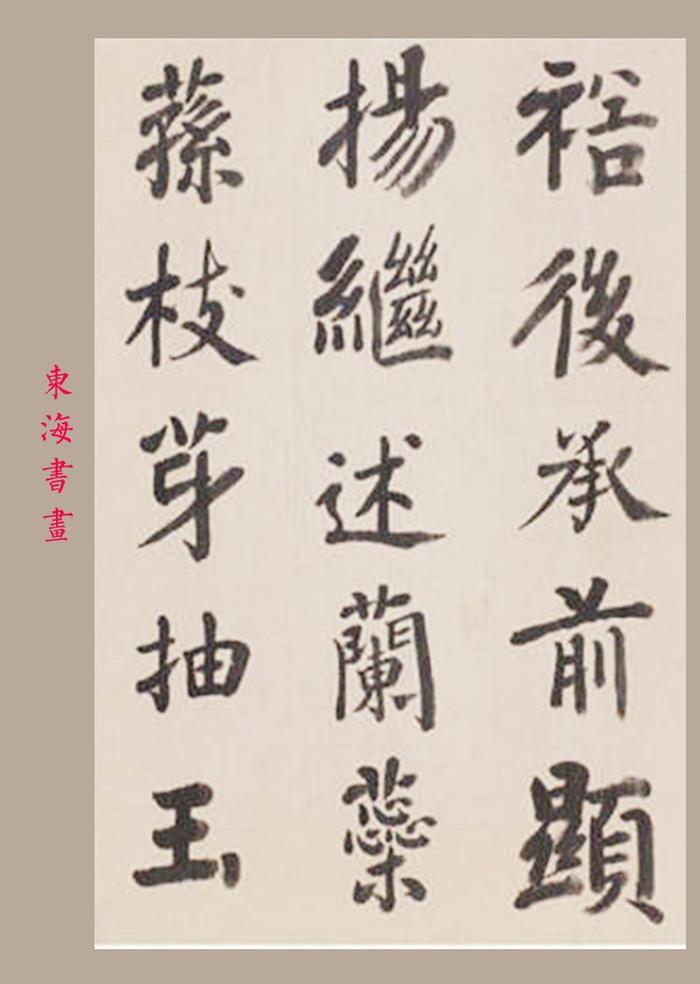 裕後承前顯
揚繼述蘭蘂
蓀枝芽抽玉
東海書畫